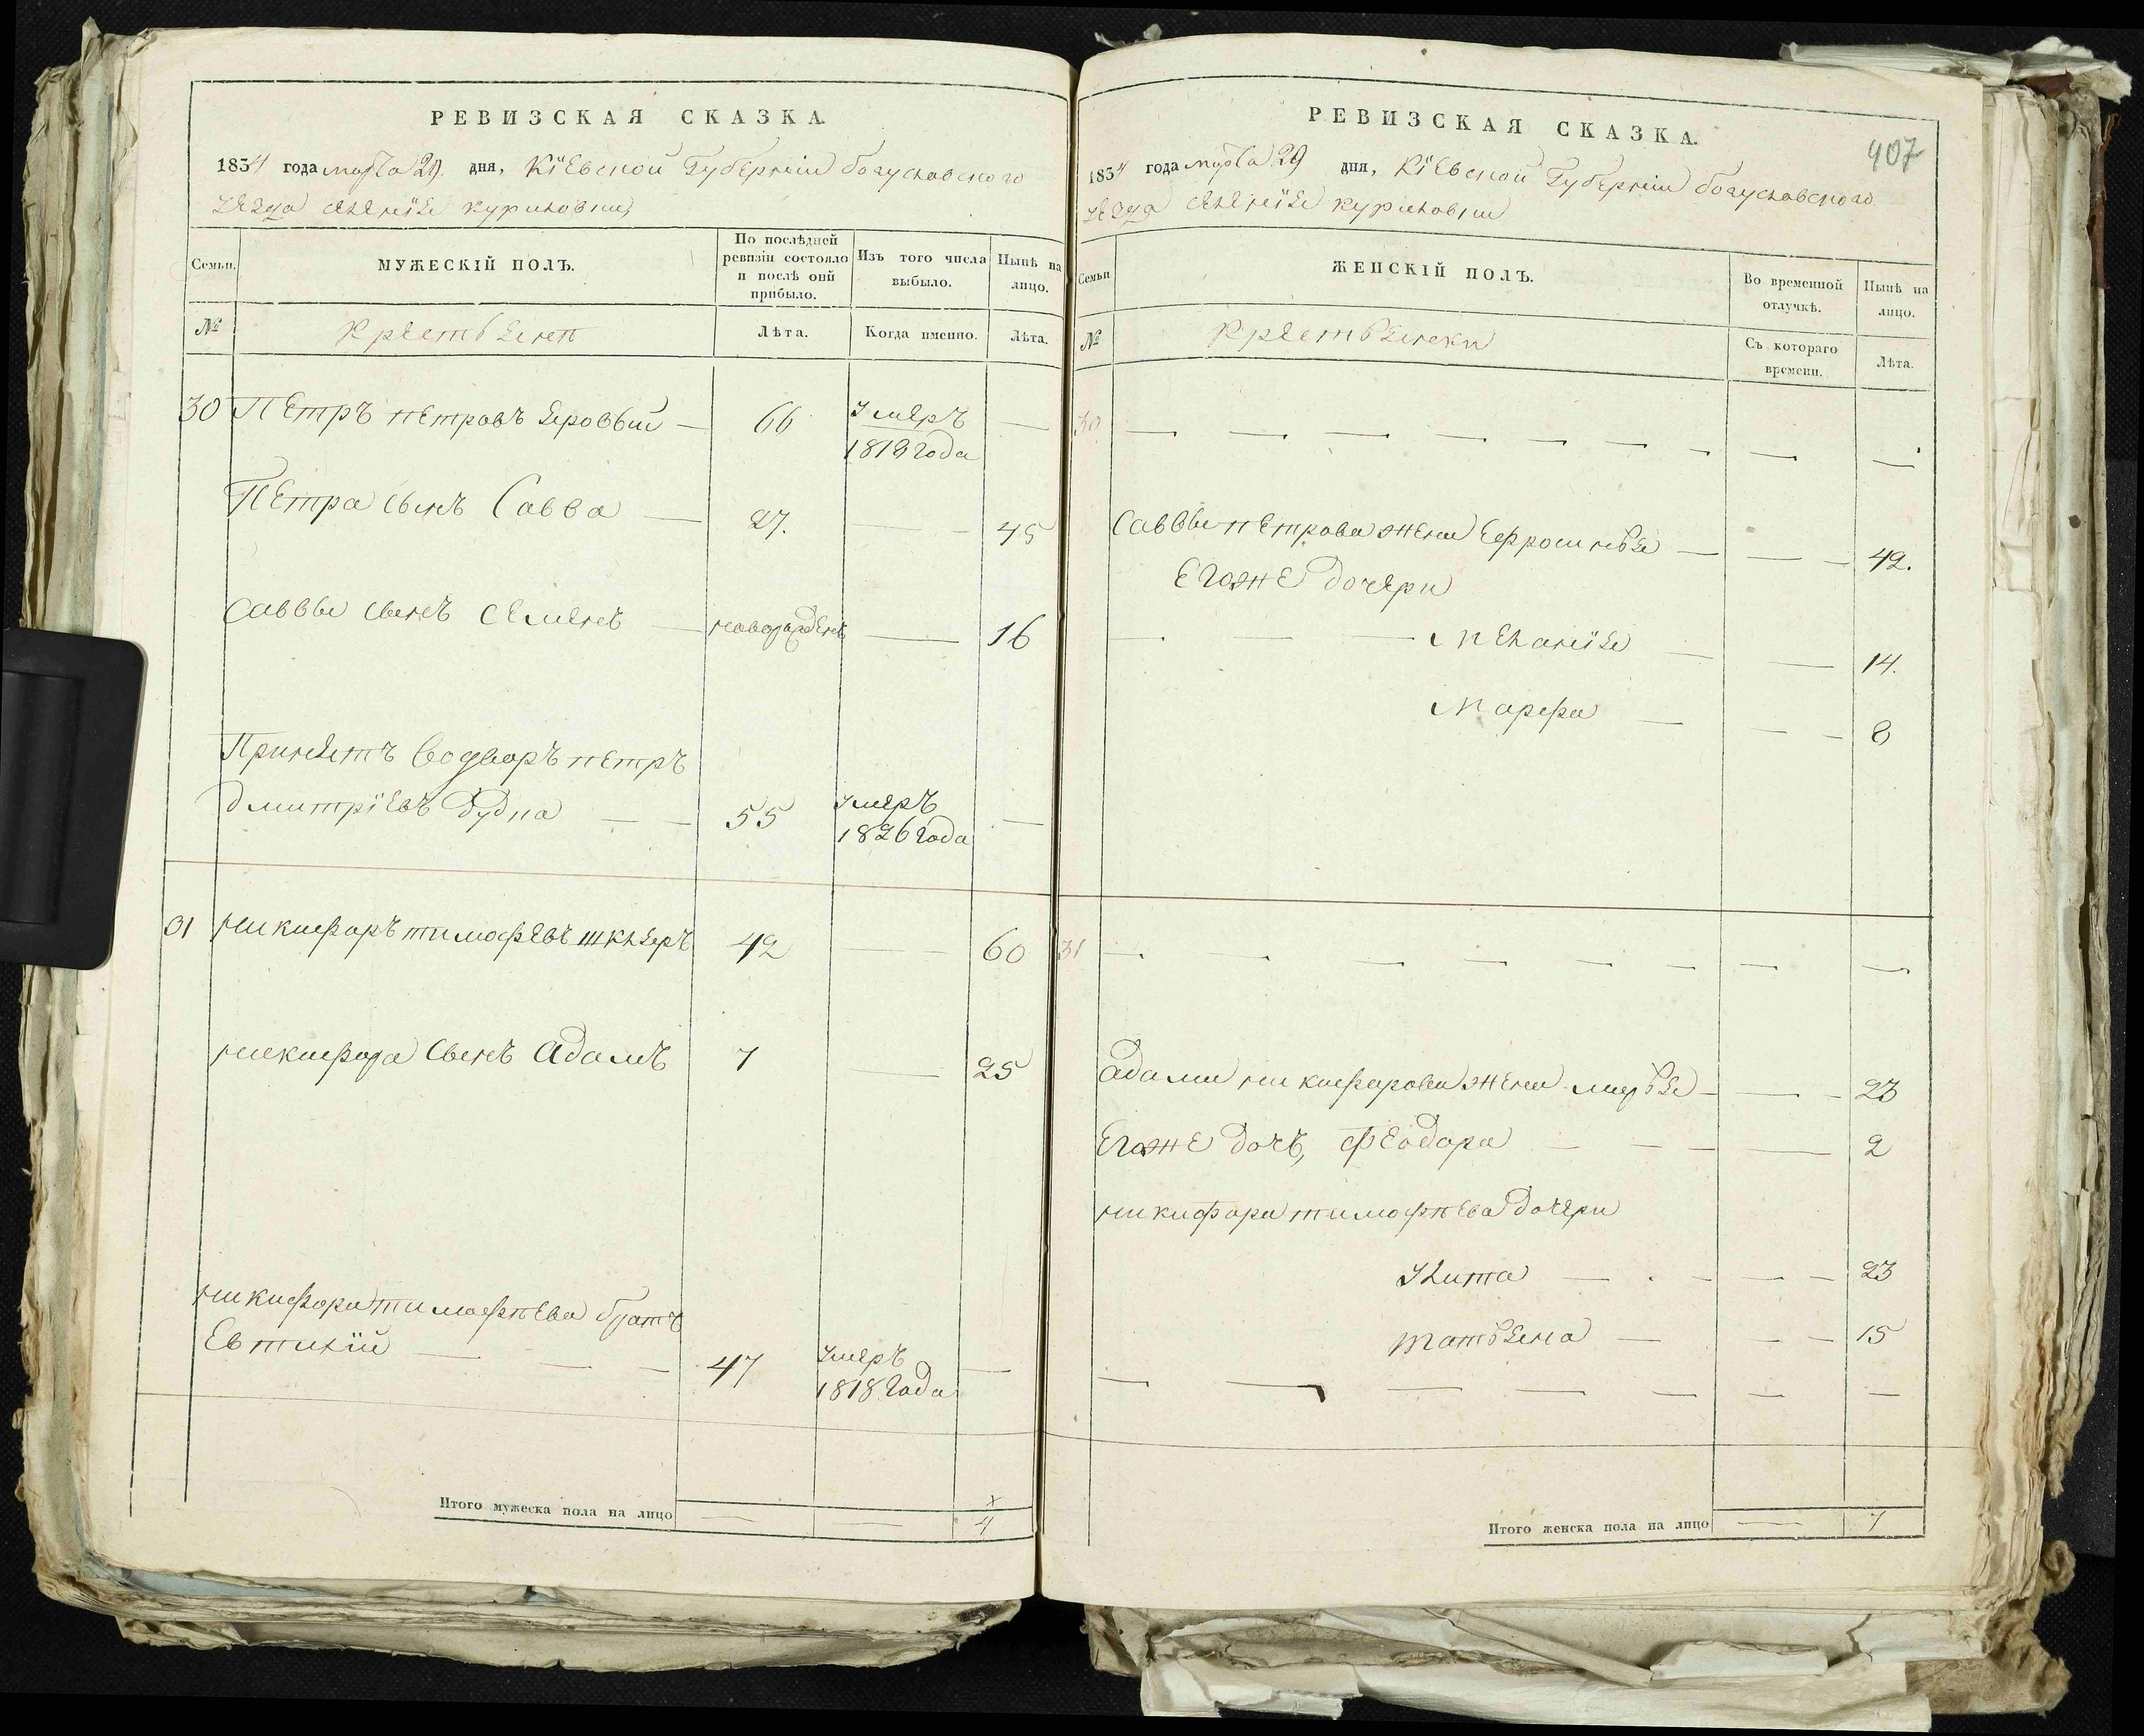 РЕВИЗСКАЯ СКАЗКА.
1834 года марта 29 дня, Кіевской Губерніи богуславского
уезда селенія куриловки
Семьи.
МУЖЕСКІЙ ПОЛЪ.
По послѣдней ревизіи состояло и послѣ оной прибыло.
Изъ того числа выбыло.
Нынѣ на лицо.
№
крестьяне
Лѣта.
Когда именно.
Лѣта.
30 Петръ петровъ яровый — 66 умеръ —
1819 года
Петра сынъ Савва — 27. — — 45
Саввы сынъ семенъ — новорожденъ — 16
Принятъ во дворъ петръ
дмитріевъ дудка — — 55 умеръ —
1826 года
31 никифоръ тимофѣевъ шкляръ 42 — — 60
никифора сынъ адамъ 7 — 25
никифора тимофѣева братъ
Евтихій — — — 47 умеръ —
1818 года
Итого мужеска пола на лицо — — 4
РЕВИЗСКАЯ СКАЗКА.
407
1834 года марта 29 дня, Кіевской Губерніи богуславского
уезда селенія куриловки
Семьи
ЖЕНСКІЙ ПОЛЪ.
Во временной отлучкѣ.
Нынѣ на лицо.
№
крестьянки
Съ котораго времени.
Лѣта.
30 — — — — — — — — —
Саввы петрова жена Ефросинья — — — 42.
Егоже дочери
— — — Меланія — — 14.
Марфа — — — 8
31 — — — — — — — —
адама никифорова жена марья — — — 23
Егоже дочь, феодора — — — — 2
никифора тимофѣева дочери
Улита — — — — 23
татьяна — — — 15
— — — — — — —
Итого женска пола на лицо — 7